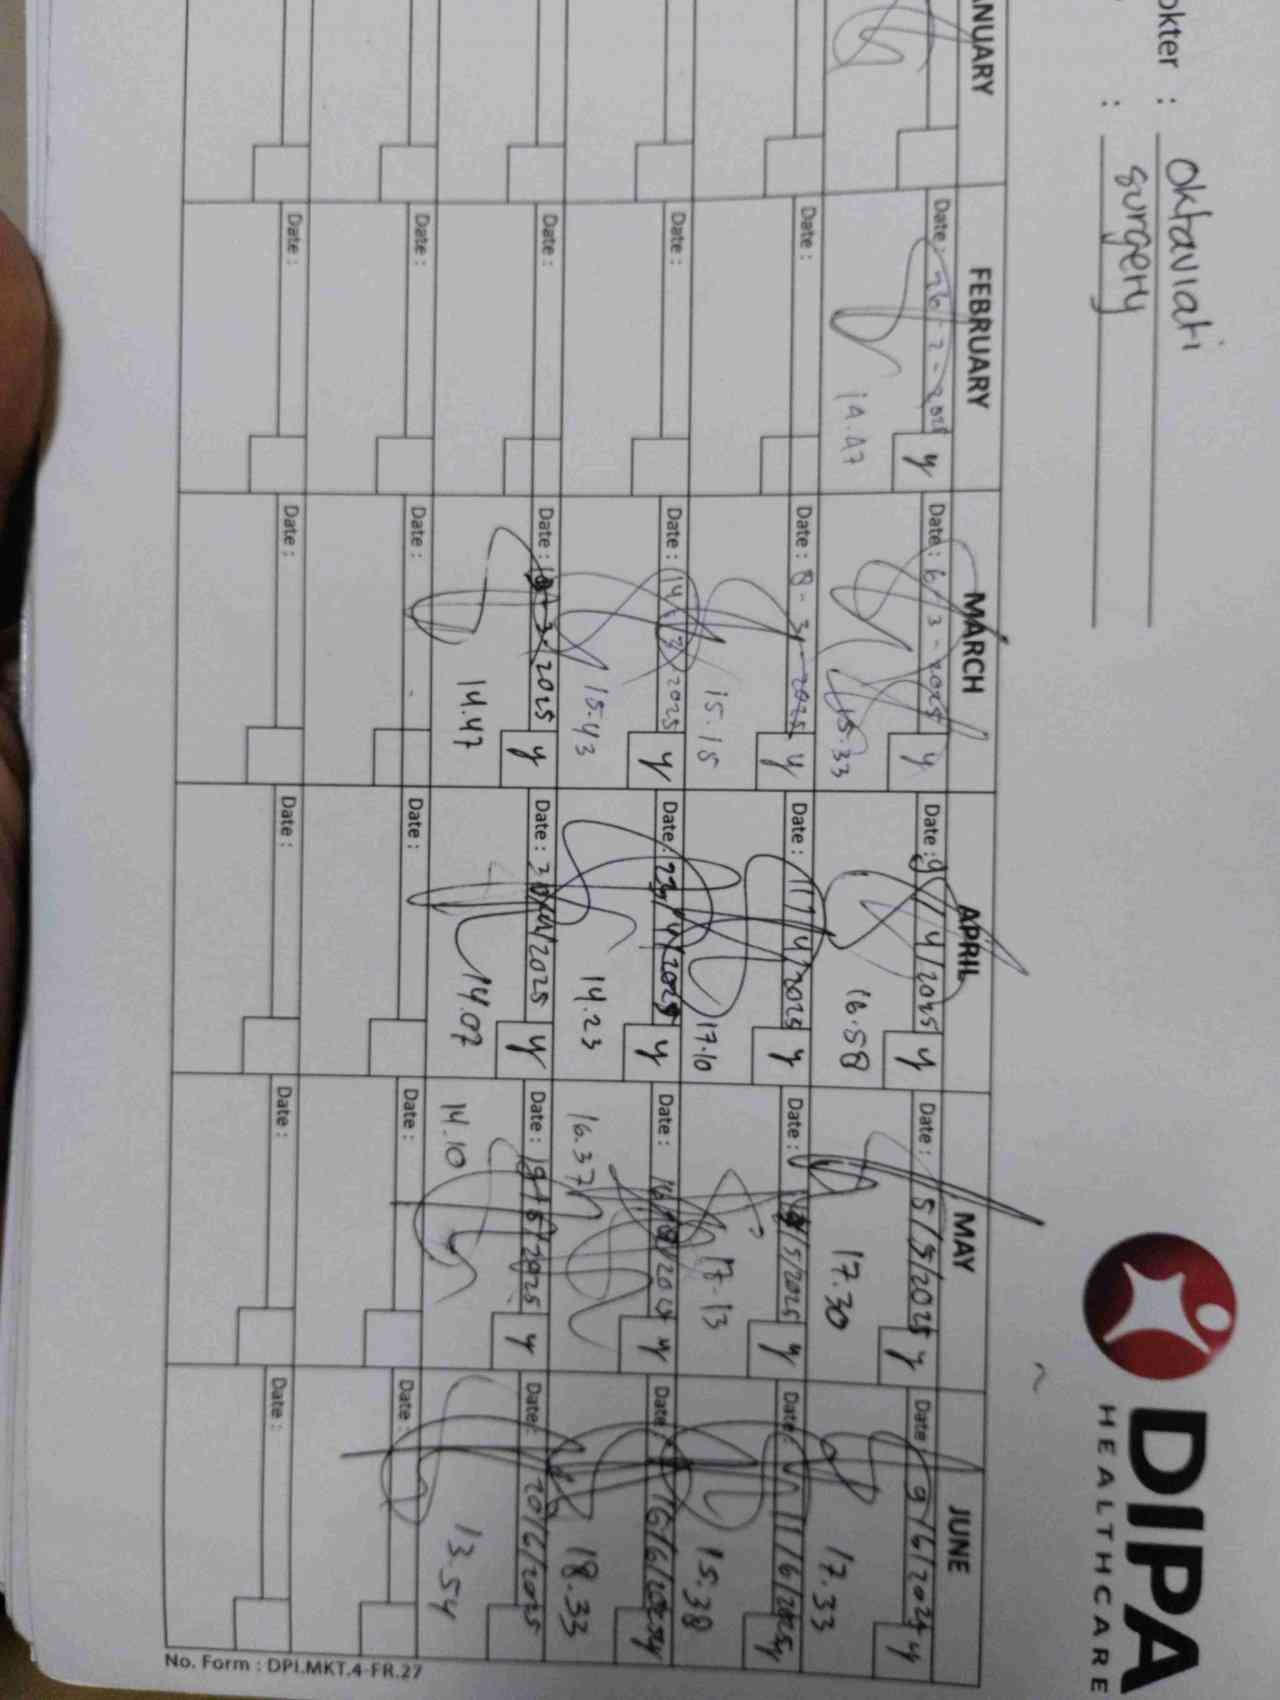 DIPA
HEALTHCARE
okter : Oktaviati
: surgery
ANUARY FEBRUARY MARCH APRIL MAY JUNE
Date : 26-2-2025 y Date : 6-3-2025 y Date : 9/4/2025 y Date : 5/5/2025 y Date : 9/6/2025 y
14.47 15.33 16.58 17.30 17.33
Date : Date : 8-3-2025 y Date : 11/4/2025 y Date : /5/2025 y Date : 11/6/2025 y
15.15 17.10 17.13 15.38
Date : Date : 14/3/2025 y Date : 22/4/2025 y Date : 16/ y Date : 16/6/2025 y
15.43 14.23 16.37 18.33
Date : Date : /2025 y Date : /2025 y Date : 19/5/2025 y Date : 20/6/2025
14.47 14.07 14.10 13.54
Date : Date : Date : Date : Date :
Date : Date : Date : Date : Date :
No. Form : DPI.MKT.4-FR.27